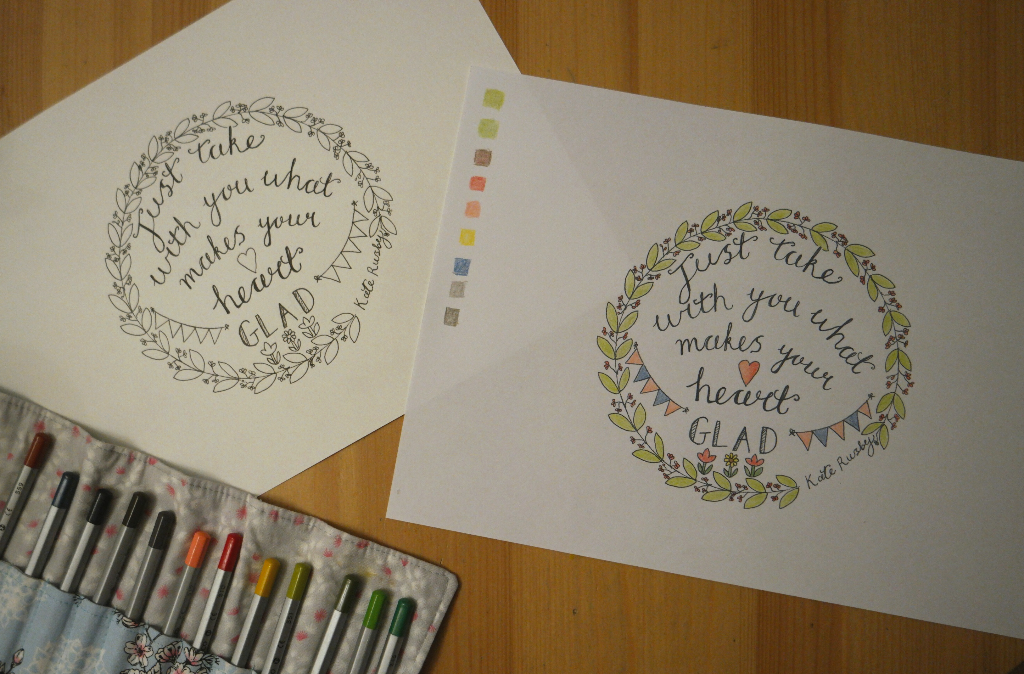 Just take
with you what
makes your
heart
GLAD
Kate Rusby
Just take
with you what
makes your
heart
GLAD
Kate Rusby